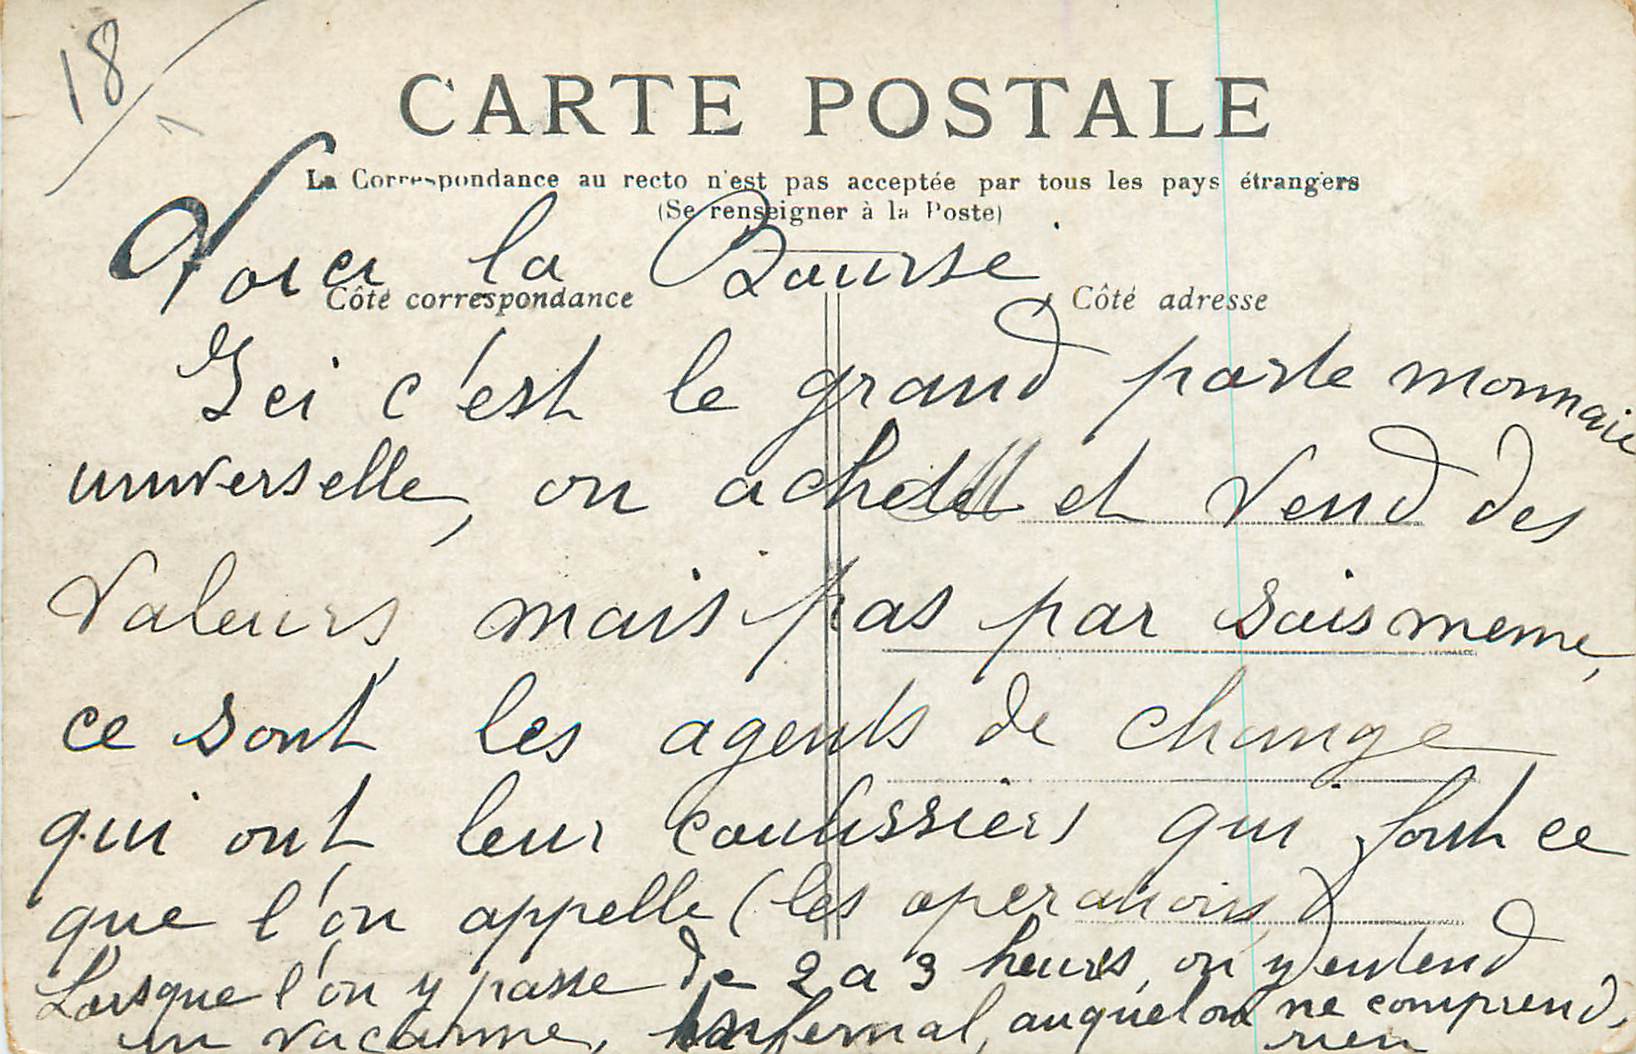 18/1
CARTE POSTALE
La Correspondance au recto n'est pas acceptée par tous les pays étrangers
(Se renseigner à la Poste)
Voici la Bourse
Côté correspondance Côté adresse
Ici c'est le grand porte monnaie
universelle, on achete et vend des
valeurs, mais pas par soismeme,
ce sont les agents de change
qui ont leur coulissiers qui font ce
que l'on appelle (les operations)
Lorsque l'on y passe de 2 a 3 heures, on y entend
un vacarme, infernal, auquel on ne comprend,
rien